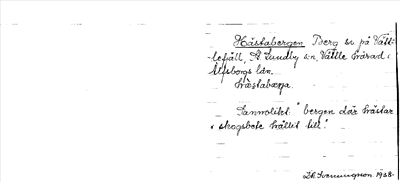 Hästabergen Berg sv på Vätt-
lefjäll, St. Lundby sn, Vättle härad i
Älfsborgs län.
hästabæra.
Sannolikt "bergen där hästar
i skogsbete hållit till".
1938.